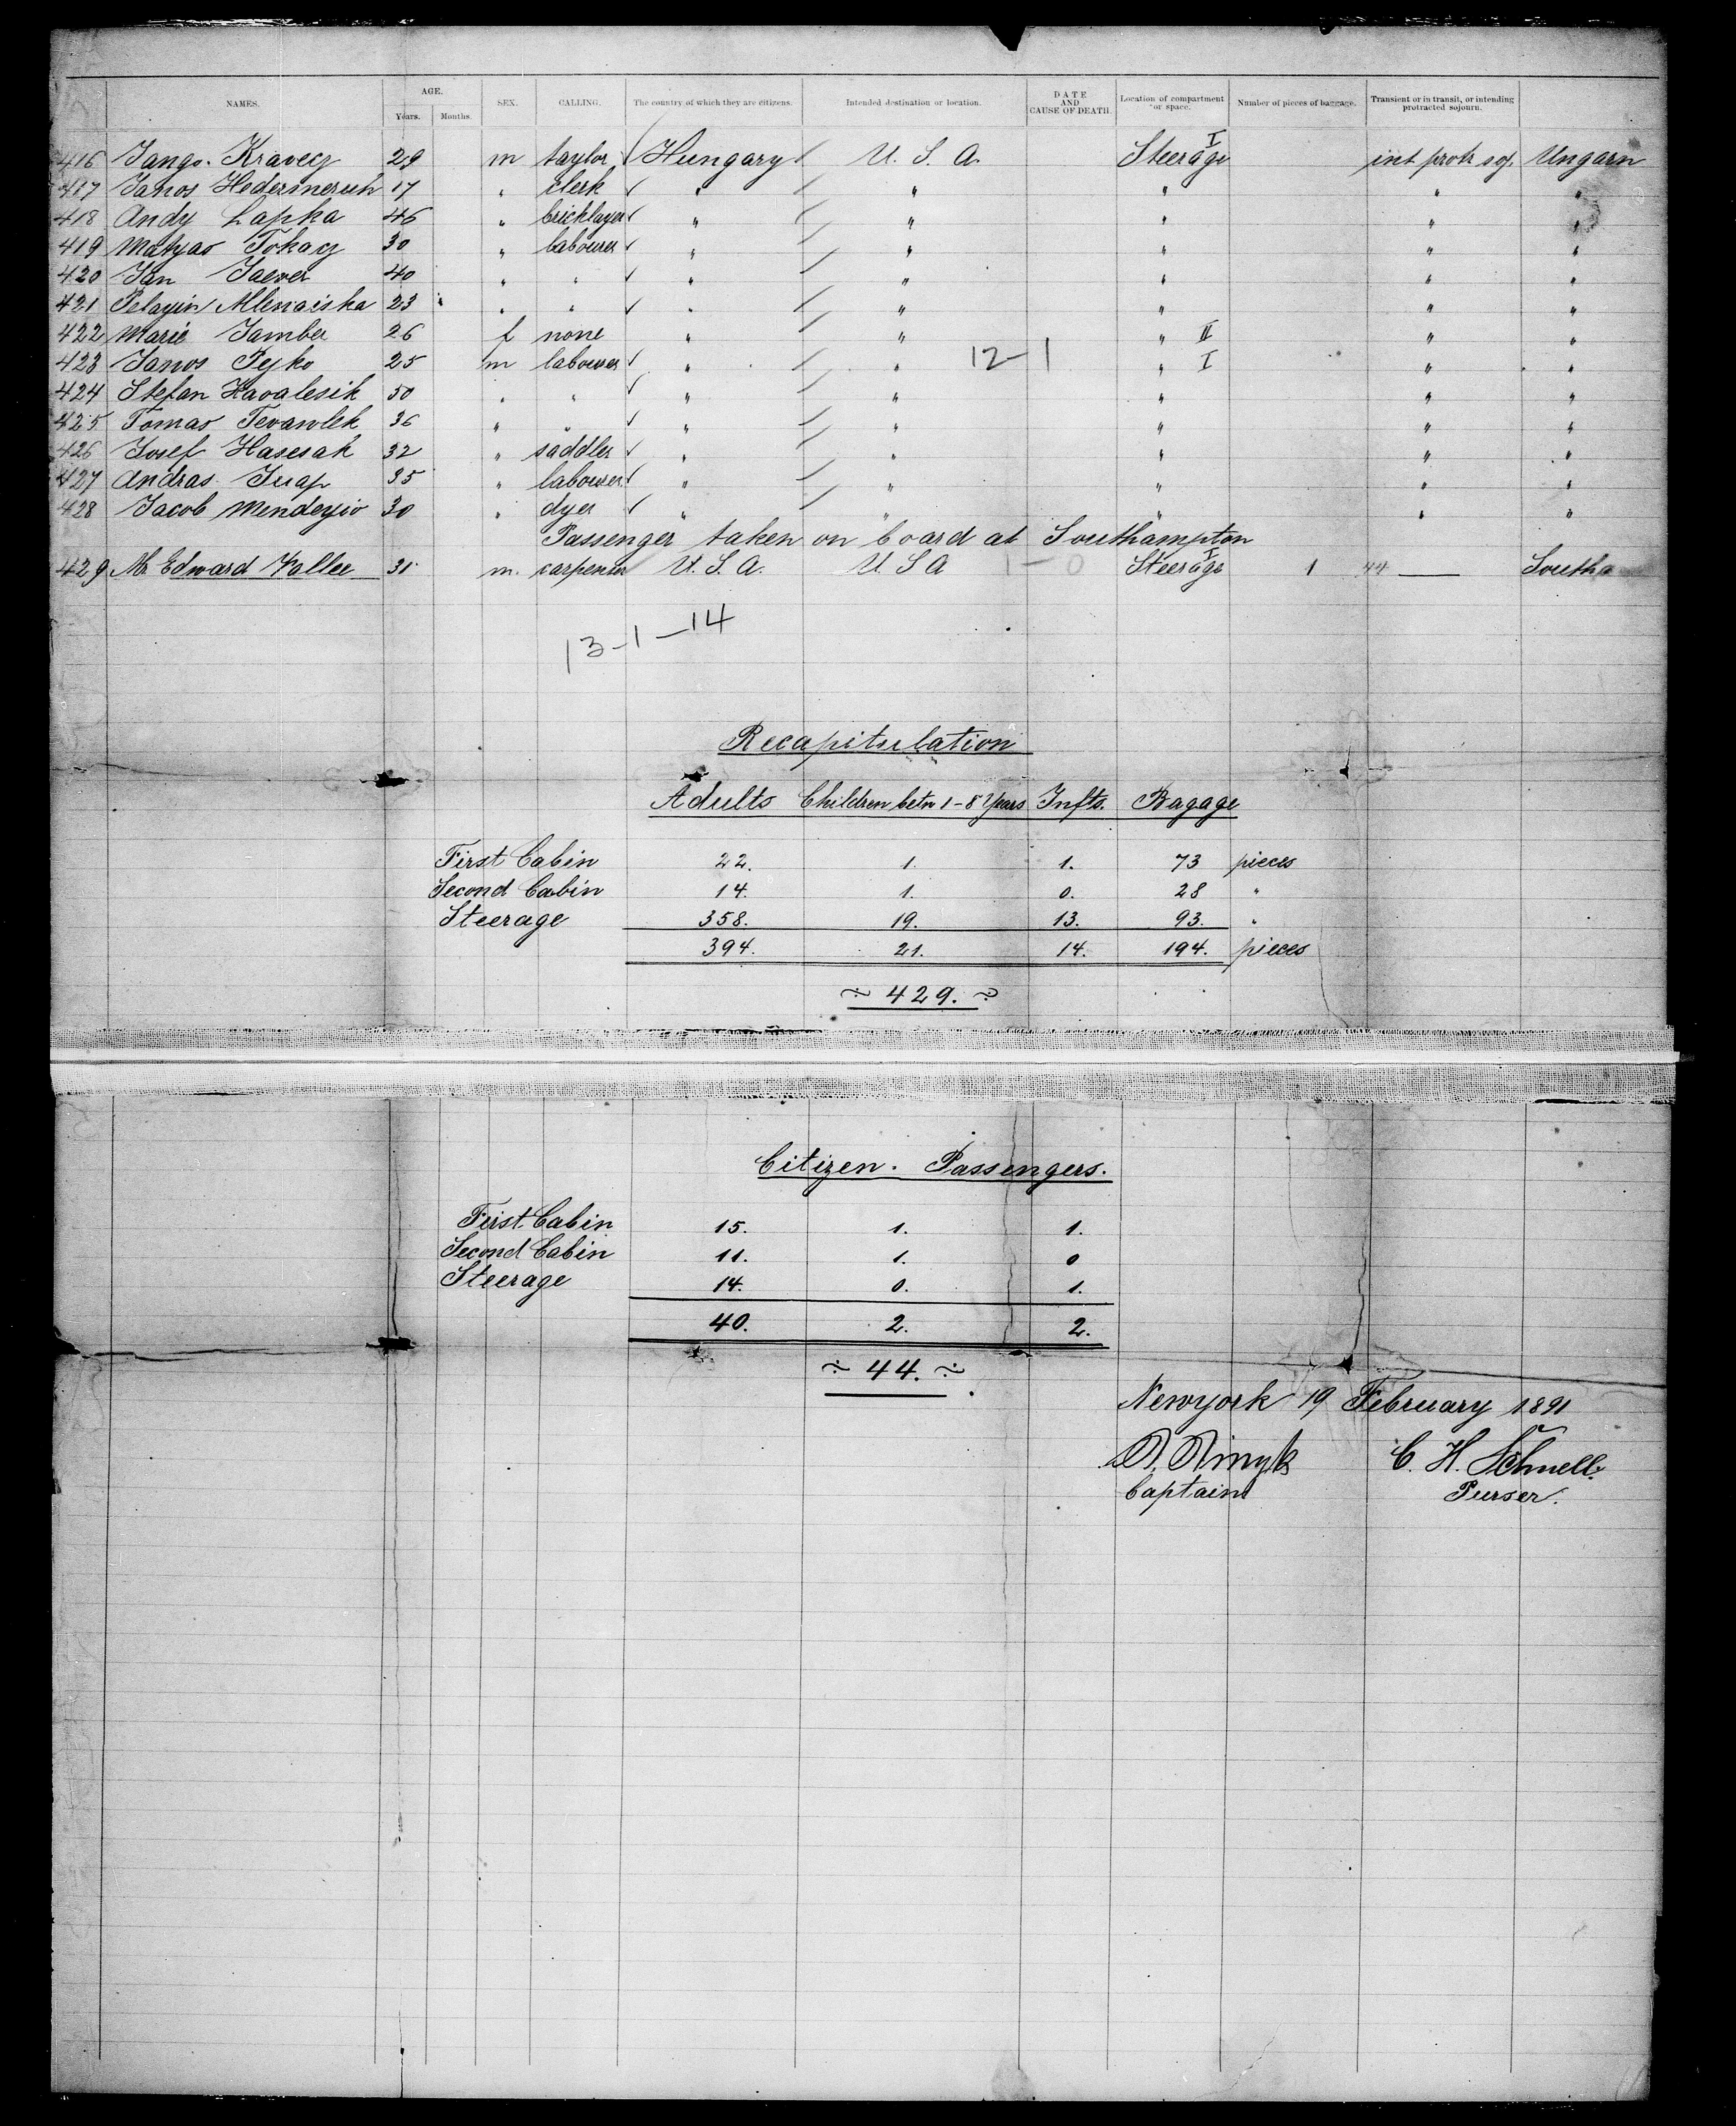 NAMES. AGE. Years. Months. SEX. CALLING. The country of which they are citizens. Intended destination or location. DATE AND CAUSE OF DEATH. Location of compartment or space. Number of pieces of baggage. Transient or in transit, or intending protracted sojourn.
416 Kravecz 29 m taylor Hungary U. S. A. Steerage I int protr soj. Ungarn
417 Janos 17 " clerk " " " " "
418 Andy Lapka 46 " bricklayer " " " " "
419 Matyas Tokacz 30 " labourer " " " " "
420 Jan 40 " " " " " " "
421 23 " " " " " " "
422 Marie Jamber 26 f none " " " II " "
423 Janos Pejko 25 m labourer " " 12-1 " I " "
424 Stefan 50 " " " " " " "
425 Tomas 36 " " " " " " "
426 Josef Hasesak 32 " saddler " " " " "
427 Andras 35 " labourer " " " " "
428 Jacob 30 " dyer " " " " "
Passenger taken on board at Southampton
429 Mr. Edward Vallee 31 m. carpenter U. S. A. U S A 1-0 Steerage I 1 44 — Southa
13-1-14
Recapitulation
Adults Children betw 1-8 Years Infts. Bagage
First Cabin 22. 1. 1. 73 pieces
Second Cabin 14. 1. 0. 28 "
Steerage 358. 19. 13. 93. "
394. 21. 14. 194. pieces
429.
Citizen. Passengers.
First Cabin 15. 1. 1.
Second Cabin 11. 1. 0
Steerage 14. 0. 1.
40. 2. 2.
44.
Newyork 19 February 1891
C. H. Schnell.
Captain Purser.